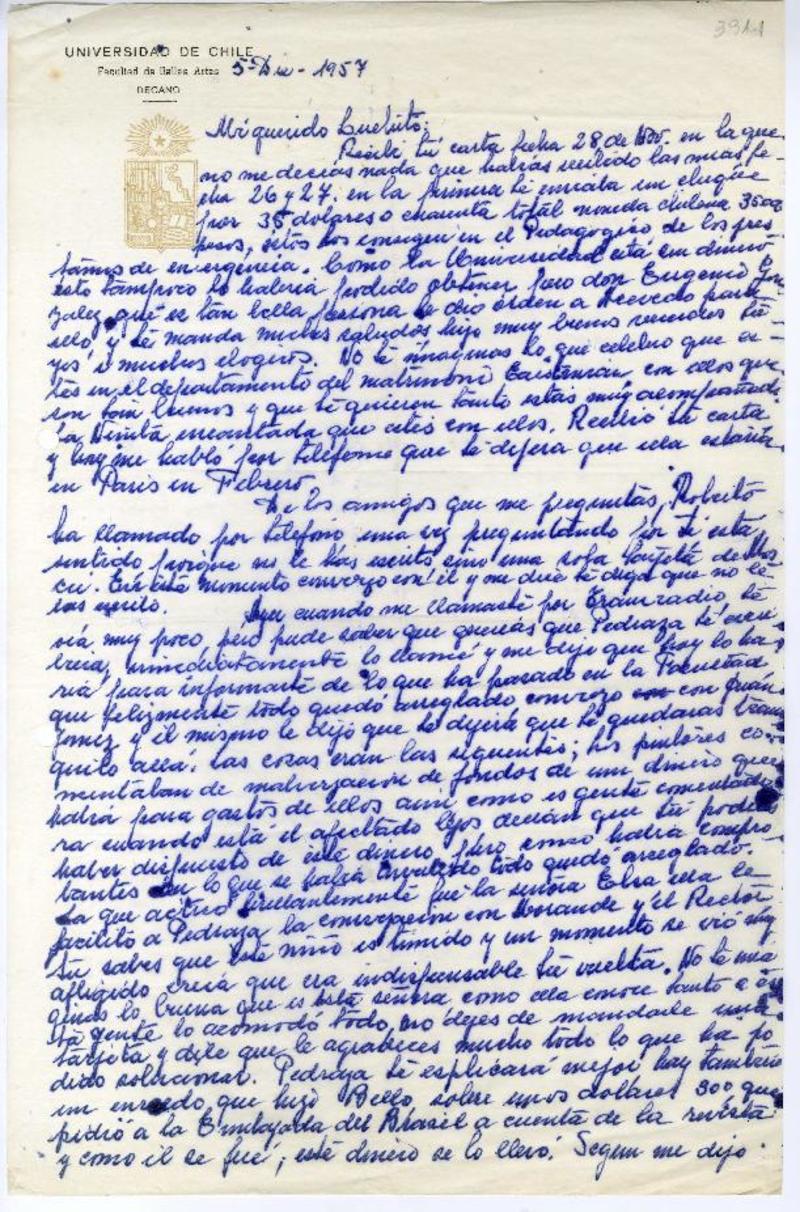 3911
UNIVERSIDAD DE CHILE
Facultad de Bellas Artes
DECANO
5-Dic-1957
Mi querido Luchito:
Recibí tú carta fecha 28 de Nov. en la que
no me decías nada que habías recibido las mias fe-
cha 26 y 27. en la primera te enviaba un cheque
por 35 dolares o cuenta total moneda chilena
pesos, estos los conseguí en el Pedagogico de los pres
tamos de emergencia. Como la Universidad está sin dinero
esto tampoco lo habría podido obtener pero don Eugenio Gon
zalez que es tan bella persona le dió orden a Acevedo para
y te manda muchos saludos hijo muy buenos recuerdos tu-
yos i muchos elogios. No te imaginas lo que celebro que es-
tés en el departamento del matrimonio con ellos que
son tan buenos y que te quieren tanto estás muy acompañado.
La Niñita encantada que estés con ellos. Recibió tu carta
y hoy me habló por telefono que te dijera que ella estaría
en Paris en Febrero.
De los amigos que me preguntas, Roberto
ha llamado por telefono una vez preguntando por ti está
sentido porque no le has escrito sino una sola tarjeta de Mos
cú. En este momento converso con él y me dice te diga que no le
has escrito.
Ayer cuando me llamaste por Transradio te
oía muy poco, pero pude saber que querías que Pedraza te escri
biera, inmediatamente lo llamé y me dijo que hoy lo ha-
ría para informarte de lo que ha pasado en la Facultad
que felizmente todo quedó arreglado converso con Juan
Gomez y él mismo le dijó que te dijera que te quedaras tran
quilo allá. Las cosas eran las siguentes; los pintores co-
mentaban de malversacion de fondos de un dinero que
había para gastos de ellos asi como es gente comentado
ra cuando está el afectado lejos decían que tú podías
haber dispuesto de este dinero, pero como había compro
bantes en lo que se había invertido todo quedó arreglado.
La que actuó brillantemente fué la señora Elsa ella le
facilitó a Pedraza la conversacion con Morande y el Rector
tú sabes que este niño es timido y un momento se vió muy
afligido creía que era indispensable tú vuelta. No te ima
ginas lo buena que es está señora como ella conoce tanto a és
ta gente lo acomodó todo, no dejes de mandarle una
tarjeta y dile que le agradeces mucho todo lo que ha po
dido solucionar. Pedraza te esplicará mejor hay también
un enredo que hizó Bello sobre unos dollares 300 que
pidió a la Embajada del Brasil a cuenta de la revista
y como él se fué; este dinero se lo llevó. Segun me dijo